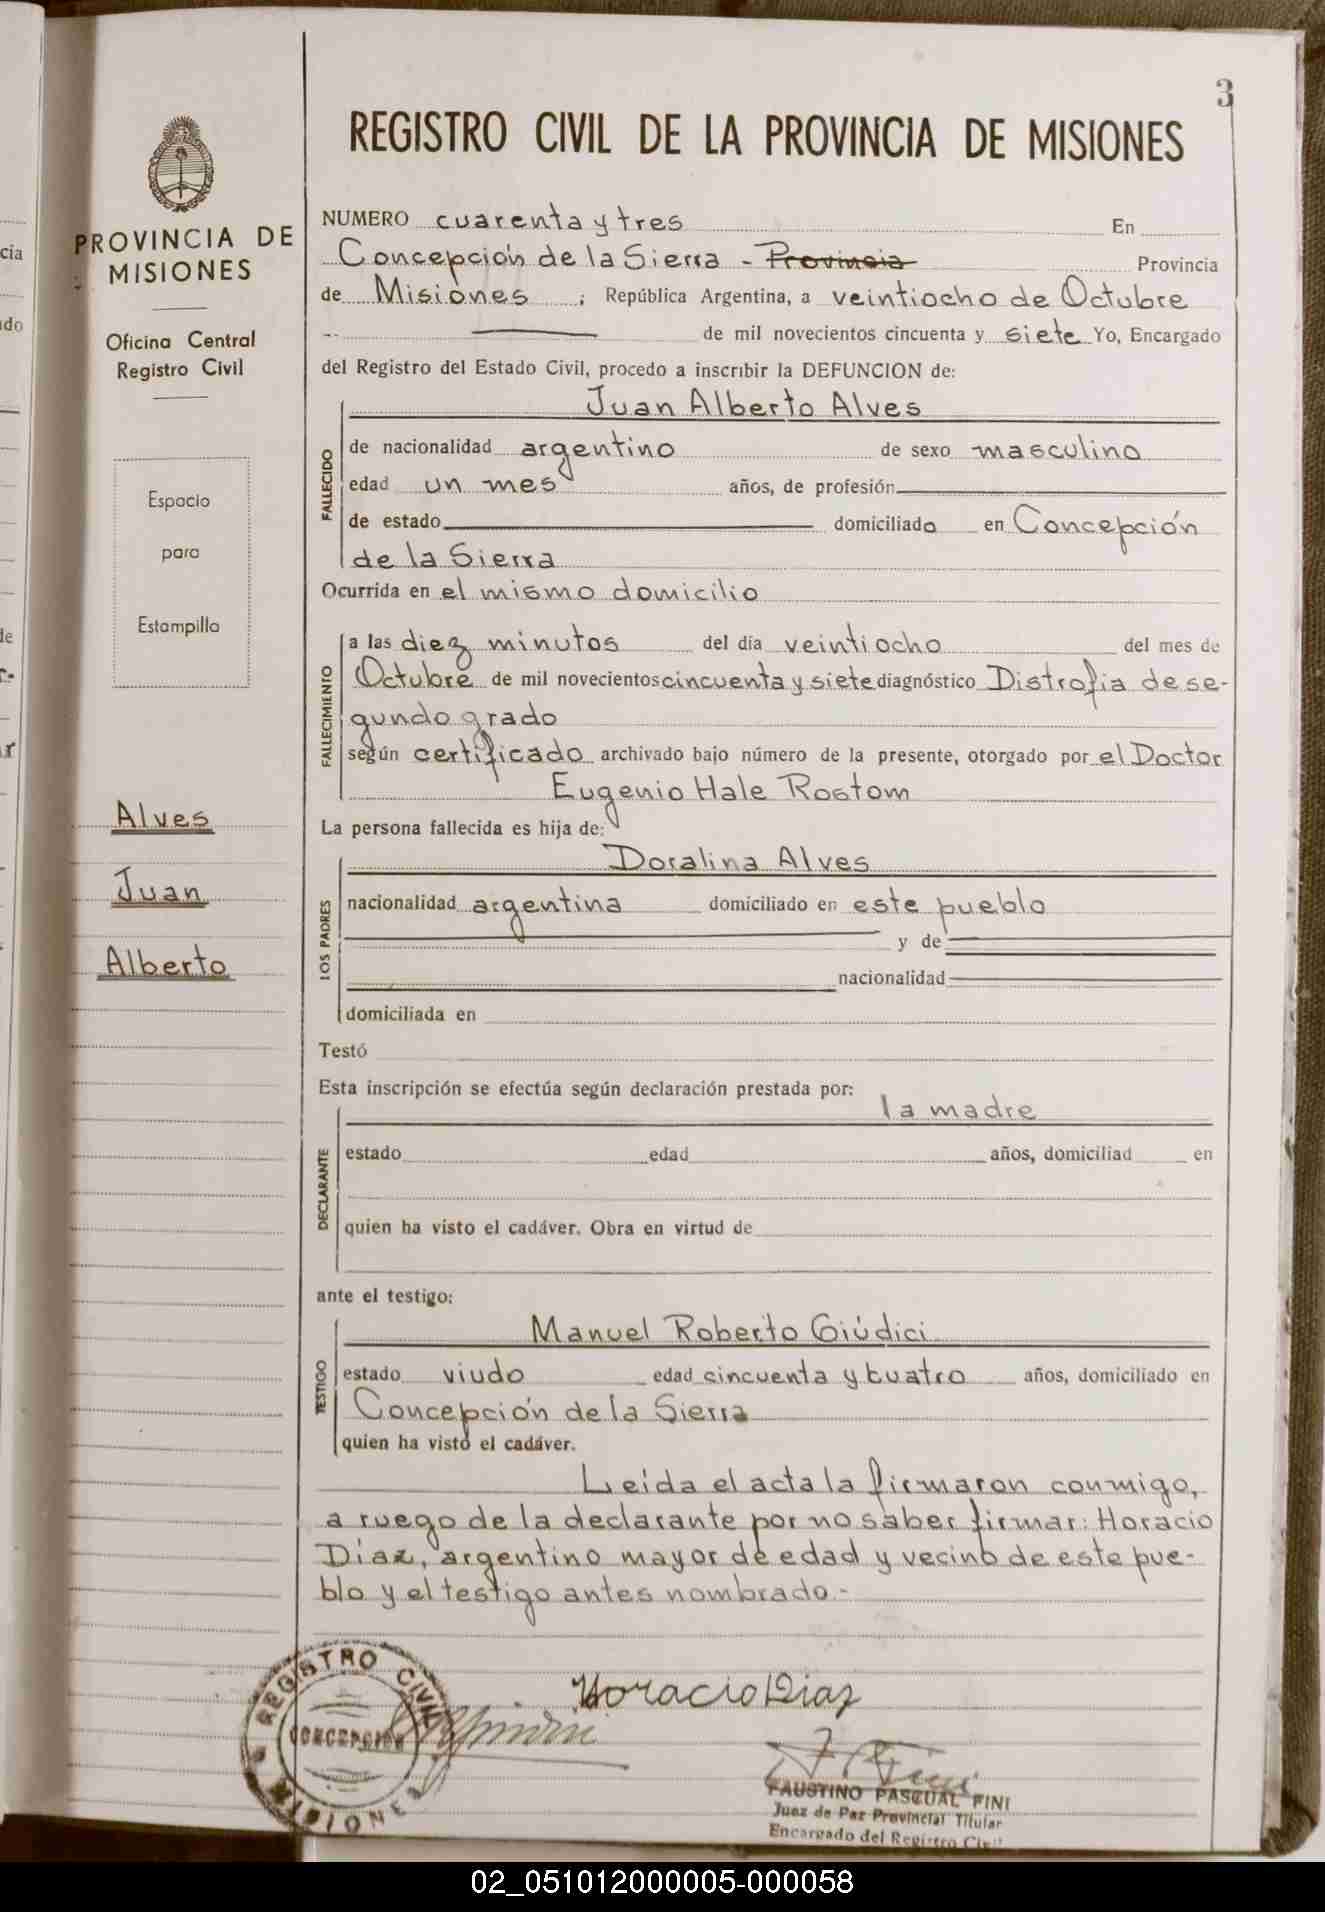 3
REGISTRO CIVIL DE LA PROVINCIA DE MISIONES
PROVINCIA DE
MISIONES
Oficina Central
Registro Civil
Espacio
para
Estampilla
Alves
Juan
Alberto
NUMERO cuarenta y tres En
Concepción de la Sierra - Provincia Provincia
de Misiones ; República Argentina, a veintiocho de Octubre
de mil novecientos cincuenta y siete Yo, Encargado
del Registro del Estado Civil, procedo a inscribir la DEFUNCION de:
Juan Alberto Alves
FALLECIDO
de nacionalidad argentino de sexo masculino
edad un mes años, de profesión
de estado domiciliado en Concepción
de la Sierra
Ocurrida en el mismo domicilio
FALLECIMIENTO
a las diez minutos del día veintiocho del mes de
Octubre de mil novecientos cincuenta y siete diagnóstico Distrofia de se-
gundo grado
según certificado archivado bajo número de la presente, otorgado por el Doctor
Eugenio Hale Rostom
La persona fallecida es hija de:
Doralina Alves
LOS PADRES
nacionalidad argentina domiciliado en este pueblo
y de
nacionalidad
domiciliada en
Testó
Esta inscripción se efectúa según declaración prestada por:
la madre
DECLARANTE
estado edad años, domiciliad en
quien ha visto el cadáver. Obra en virtud de
ante el testigo:
Manuel Roberto Giúdici
TESTIGO
estado viudo edad cincuenta y cuatro años, domiciliado en
Concepción de la Sierra
quien ha visto el cadáver.
Leída el acta la firmaron conmigo,
a ruego de la declarante por no saber firmar: Horacio
Díaz, argentino mayor de edad y vecino de este pue-
blo y el testigo antes nombrado.-
REGISTRO CIVIL
CONCEPCION
MISIONES
Horacio Diaz
FAUSTINO PASCUAL FINI
Juez de Paz Provincial Titular
Encargado del Registro Civil
02_051012000005-000058